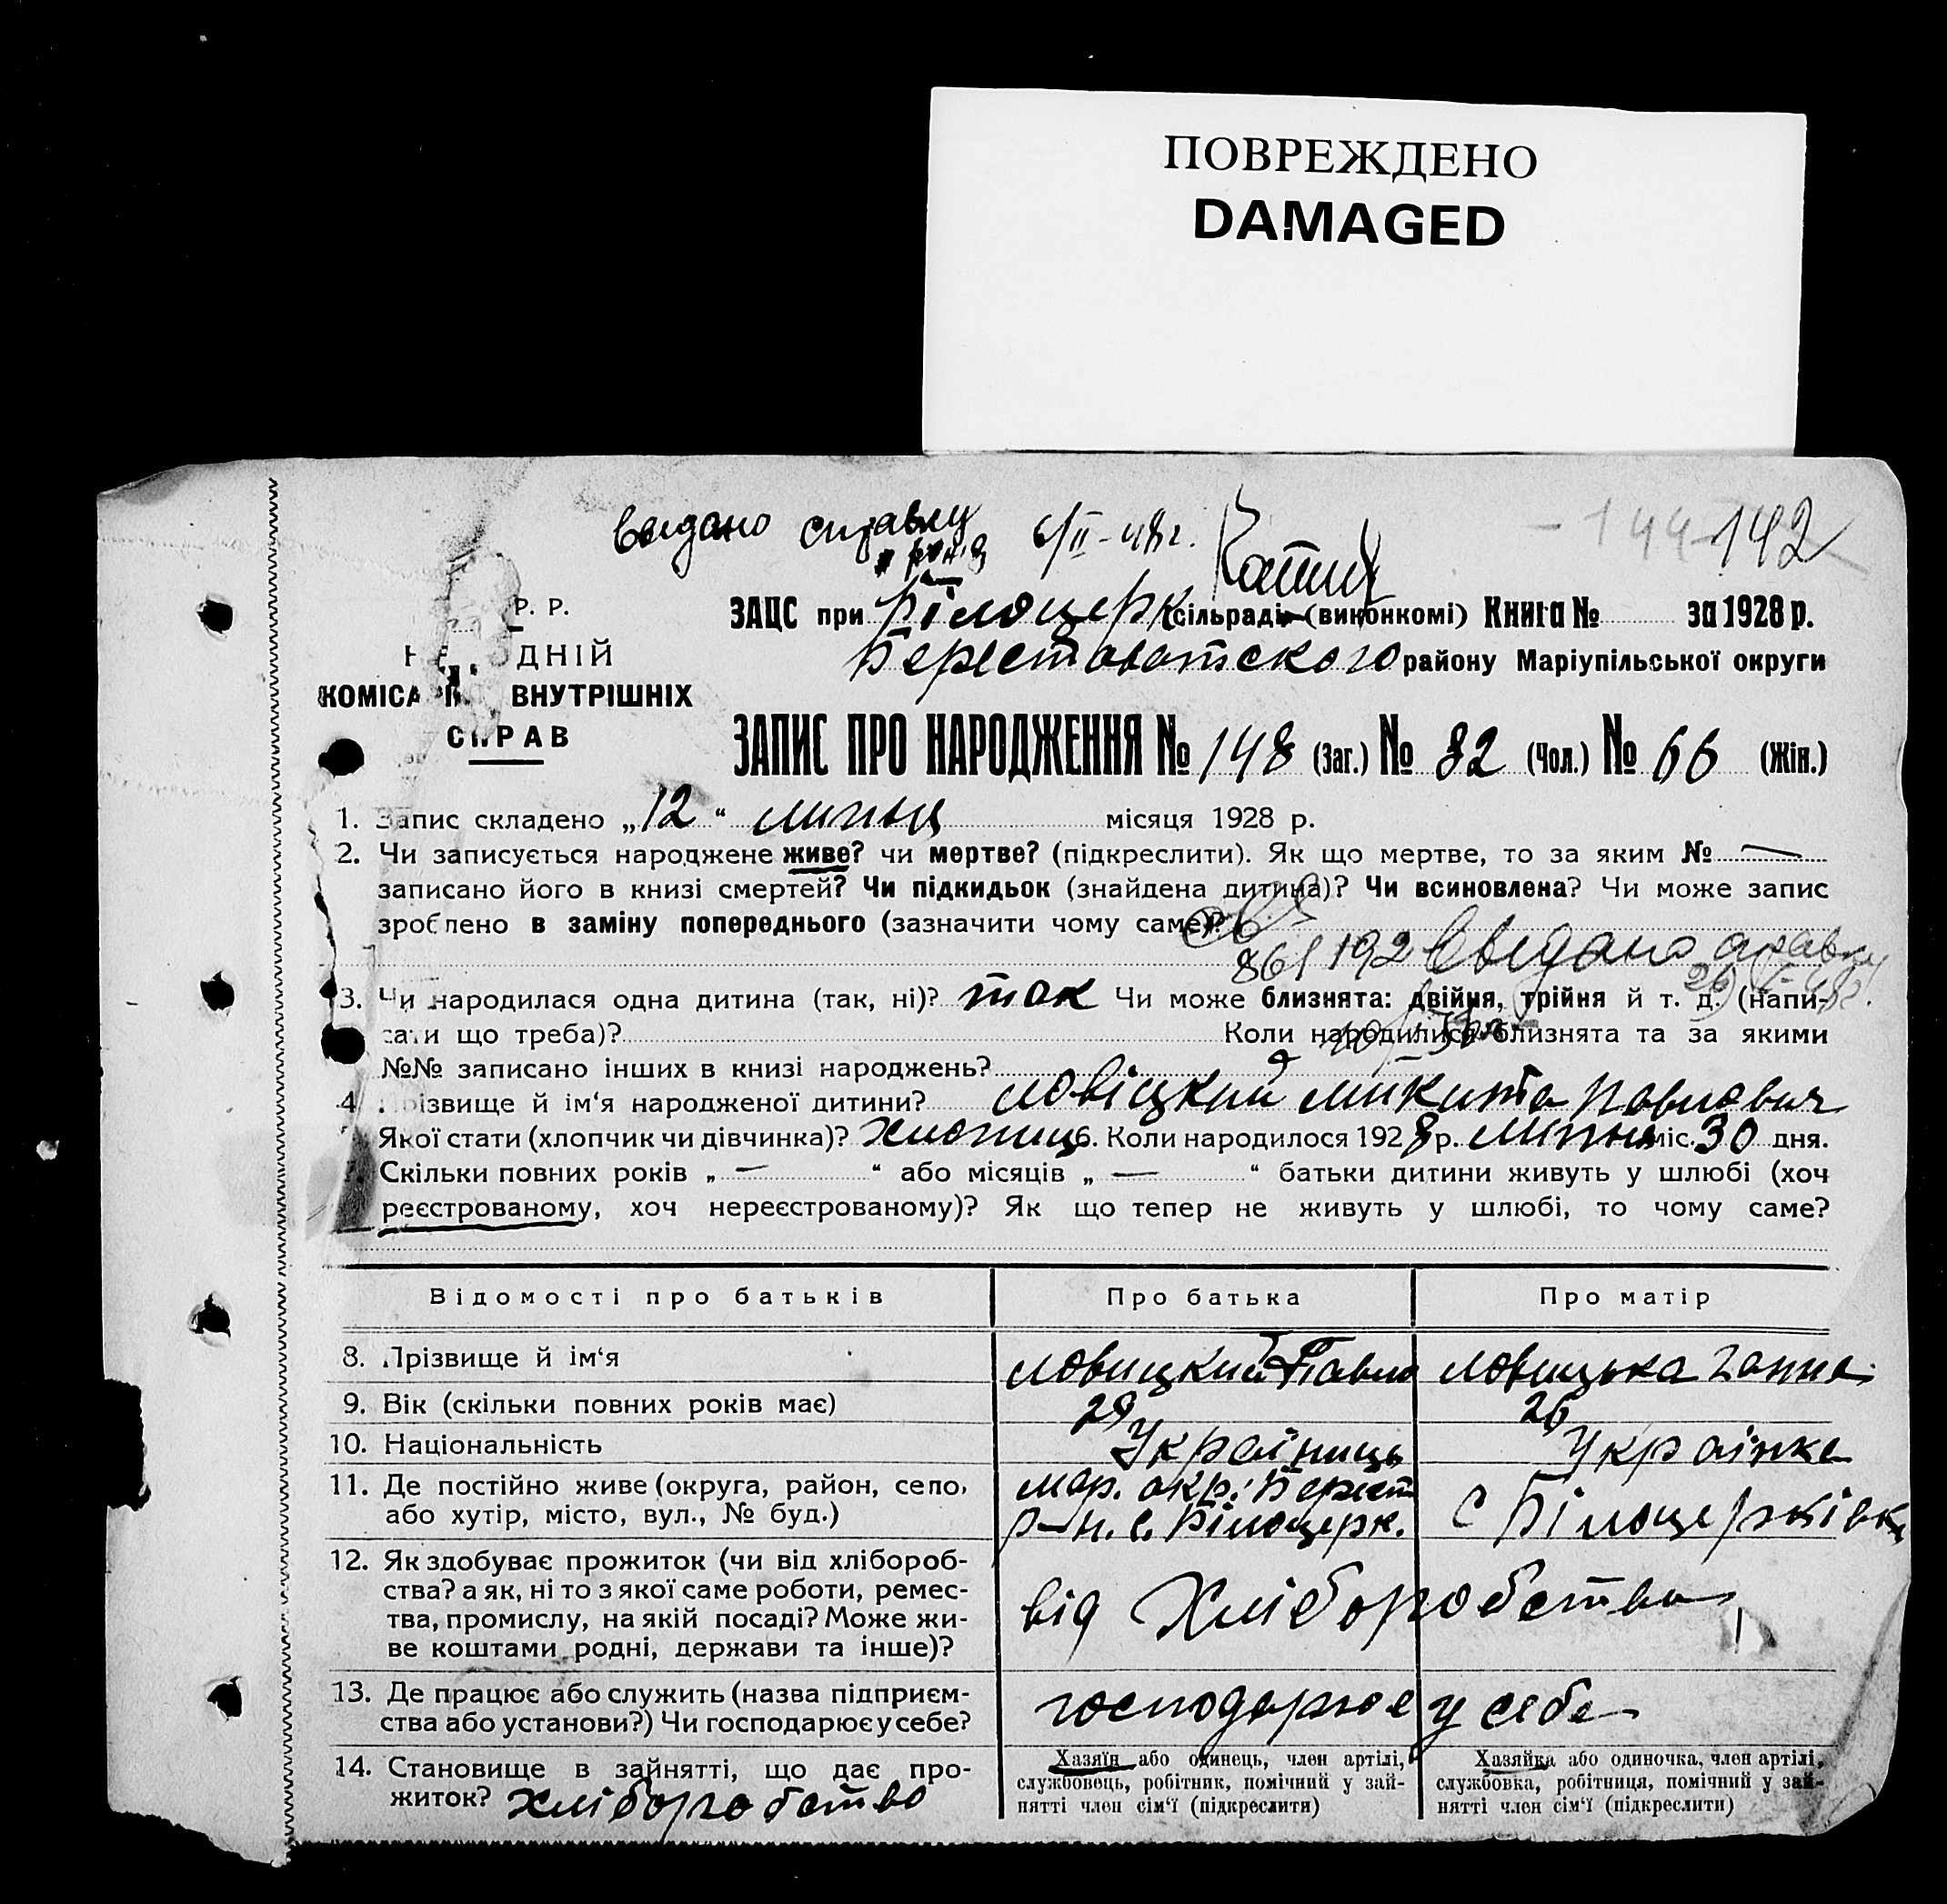 ПОВРЕЖДЕНО
DAMAGED
видано справку 6/II-48г.
142
Р. Р.
ЗАЦС при Білоцерк сільраді (виконкомі) Книга № за 1928 р.
ОДНІЙ
Берестоватского району Маріупільської округи
КОМІСА ВНУТРІШНІХ
СПРАВ
ЗАПИС ПРО НАРОДЖЕННЯ № 148 (Заг.) № 82 (Чол.) № 66 (Жін.)
1. Запис складено „12“ липня місяця 1928 р.
2. Чи записується народжене живе? чи мертве? (підкреслити). Як що мертве, то за яким № —
записано його в книзі смертей? Чи підкидьок (знайдена дитина)? Чи всиновлена? Чи може запис
зроблено в заміну попереднього (зазначити чому саме)?
861 192 Видано справку
3. Чи народилася одна дитина (так, ні)? так Чи може близнята: двійня, трійня й т. д. (напи-
сати що треба)? Коли народилися близнята та за якими
№№ записано інших в книзі народжень?
4. Прізвище й ім‘я народженої дитини? Ловіцкий Микита Павлович
Якої стати (хлопчик чи дівчинка)? Хлопиц 6. Коли народилося 1928 р. липня міс. 30 дня.
Скільки повних років „ — “ або місяців „ — “ батьки дитини живуть у шлюбі (хоч
реєстрованому, хоч нереєстрованому)? Як що тепер не живуть у шлюбі, то чому саме?
Відомості про батьків Про батька Про матір
8. Прізвище й ім‘я Ловицкий Павло Ловицька Ганна
9. Вік (скільки повних років має) 29 26
10. Національність Украіниць Украінка
11. Де постійно живе (округа, район, село,
або хутір, місто, вул., № буд.)
Мар. окр. Берест
р-н. с. Білоцерк.
с Білоцерківка
12. Як здобуває прожиток (чи від хлібороб-
ства? а як, ні то з якої саме роботи, ремес-
тва, промислу, на якій посаді? Може жи-
ве коштами родні, держави та інше)?
від Хліборобства
13. Де працює або служить (назва підприєм-
ства або установи?) Чи господарює у себе?
господарює у себе
14. Становище в зайнятті, що дає про-
житок? Хліборобство
Хазяїн або одинець, член артілі,
службовець, робітник, помічний у зай-
нятті член сім‘ї (підкреслити)
Хазяйка або одиночка, член артілі,
службовка, робітниця, помічний у зай-
нятті член сім‘ї (підкреслити)